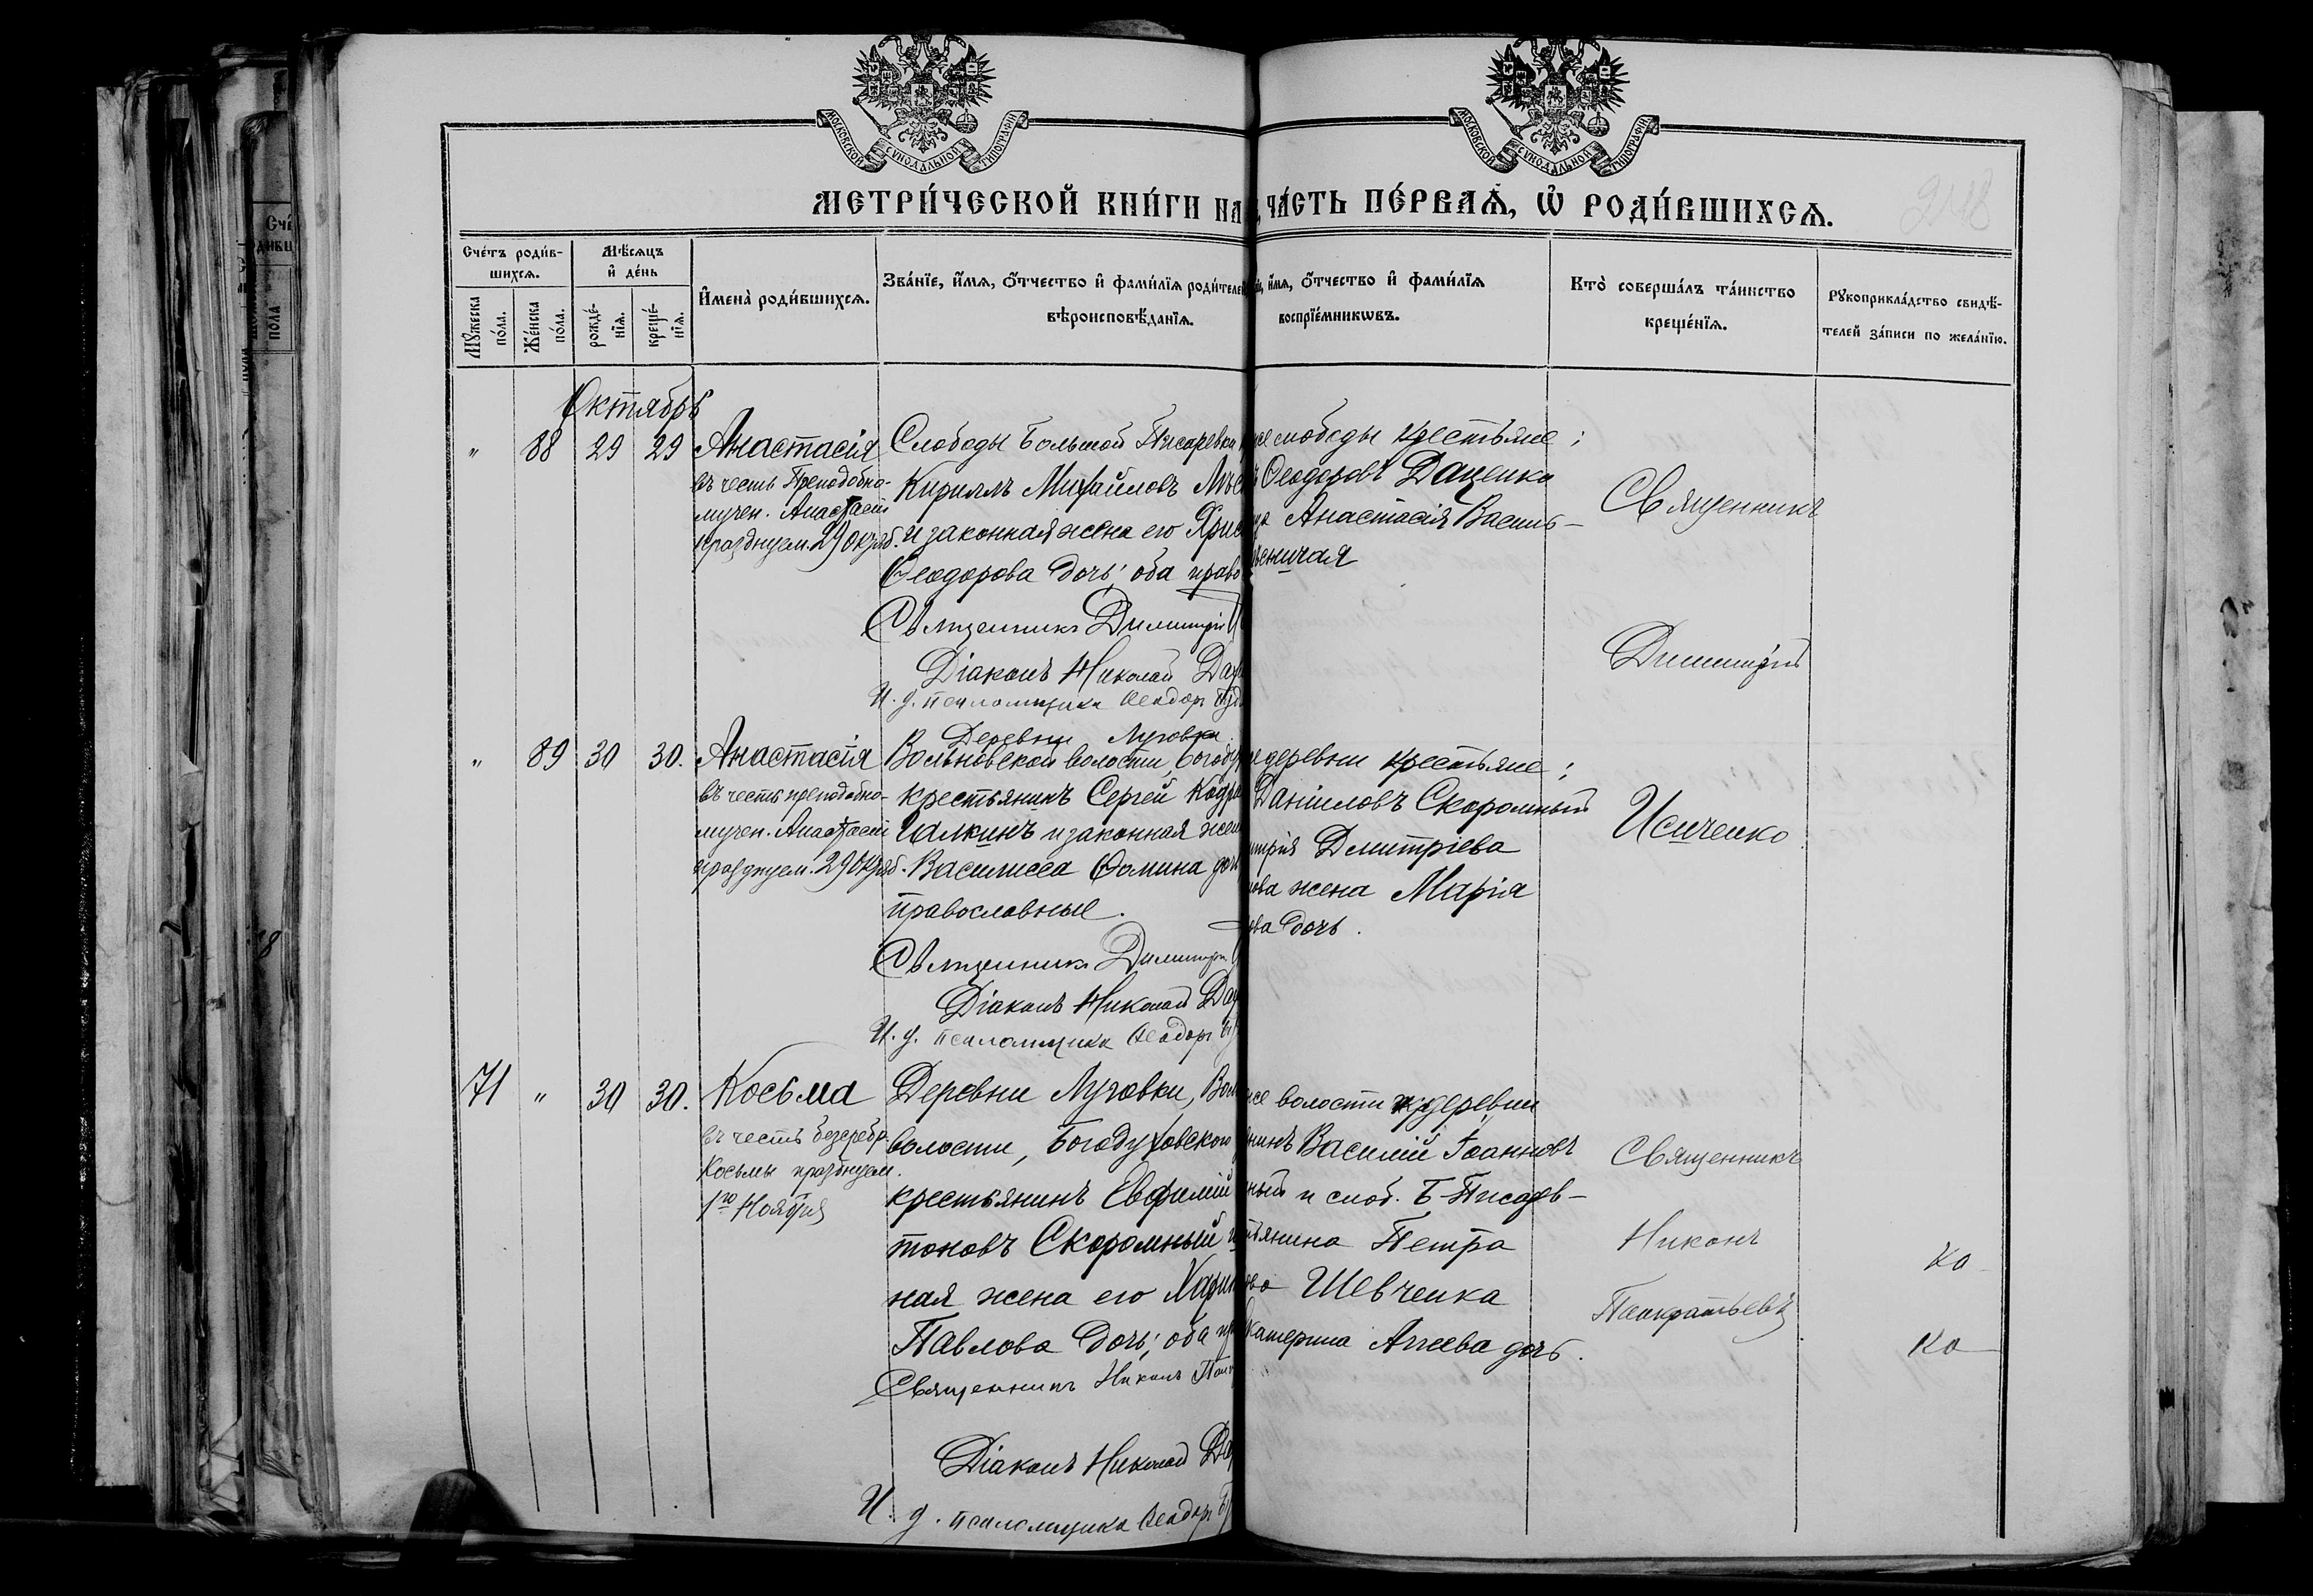 МОСКОВСКОЙ СѴНОДАЛЬНОЙ ТИПОГРАФІИ
МОСКОВСКОЙ СѴНОДАЛЬНОЙ ТИПОГРАФІИ
МЕТРИ́ЧЕСКОЙ КНИ́ГИ НА
ЧА́СТЬ ПЕ́РВАѦ, Ѡ҆ РОДИ́ВШИХСѦ.
Сче́тъ роди́в-
шихсѧ.
Мѣ́сѧцъ
и҆ де́нь
Мꙋ́жеска по́ла.
Же́нска по́ла.
рожде́-нїѧ.
креще́-нїѧ.
И҆мена̀ роди́вшихсѧ.
Зва́нїе, и҆́мѧ, ѻ҆́тчество и҆ фами́лїѧ роди́теле
вѣроисповѣ́данїѧ.
и҆́мѧ, ѻ҆́тчество и҆ фами́лїѧ
воспрїе́мникѡвъ.
Кто̀ соверша́лъ та́инство
креще́нїѧ.
Рꙋкоприкла́дство свидѣ́-
телей за́писи по жела́нїю.
Октябрь
" 88 29 29 Анастасія
въ честь Преподобно-
мучен. Анастасіи
празднуем. 29 октяб.
Слободы Большой Писаревки
Кирилъ Михайловъ
и законная жена его
Ѳеодорова дочь; оба право
Священникъ Димитрій
Діаконъ Николай
И. д. псаломщика Ѳеодоръ
же слободы крестьяне:
Ѳеодоровъ Даценко
Анастасія Василь-
Священникъ
Димитрій
Исиченко
" 89 30 30. Анастасія
въ честь преподобно-
мучен. Анастасіи
празднуем. 29 октяб.
Деревни Луговки
Вольновской волости,
крестьянинъ Сергей
и законная
Василисса Ѳомина
православные.
Священникъ Димитрій
Діаконъ Николай
И. д. псаломщика Ѳеодоръ
деревни крестьяне:
Даніиловъ Скоромный
Дмитріева
жена Марія
ова дочь.
71 " 30 30. Косьма
въ честь безсребр.
Косьмы празднуем.
1го Ноября
Деревни Луговки,
волости, Богодуховскаго
крестьянинъ Евфимій
тоновъ Скоромный
ная жена его
Павлова дочь; оба
Священникъ Никонъ
Діаконъ Николай
И. д. псаломщика Ѳеодоръ
же волости деревни
Василій Іоанновъ
ный и слоб. Б-Писарев-
Петра
Шевченка
катерина Аггеева дочь.
Священникъ
Никонъ
Панкратьевъ